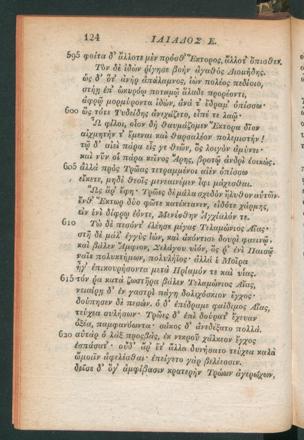 124 ΙΛΙΑΔΟΣ Ε.
595 φοίτα δ' ἄλλοτε μὲν πρόσθ' Ἕκτορος, ἄλλοτ' ὄπισθεν.
Τὸν δὲ ἰδὼν ῥίγησε βοὴν ἀγαθὸς Διομήδης.
ὡς δ' ὅτ' ἀνὴρ ἀπάλαμνος, ἰὼν πολέος πεδίοιο,
στήῃ ἐπ' ὠκυρόῳ ποταμῷ ἅλαδε προρέοντι,
ἀφρῷ μορμύροντα ἰδὼν, ἀνά τ' ἔδραμ' ὀπίσσω·
600 ὣς τότε Τυδείδης ἀνεχάζετο, εἶπέ τε λαῷ·
Ὦ φίλοι, οἷον δὴ θαυμάζομεν Ἕκτορα δῖον
αἰχμητήν τ' ἔμεναι καὶ θαρσαλέον πολεμιστήν!
τῷ δ' αἰεὶ πάρα εἷς γε θεῶν, ὃς λοιγὸν ἀμύνει·
καὶ νῦν οἱ πάρα κεῖνος Ἄρης, βροτῷ ἀνδρὶ ἐοικώς.
605 ἀλλὰ πρὸς Τρῶας τετραμμένοι αἰὲν ὀπίσσω
εἴκετε, μηδὲ θεοῖς μενεαινέμεν ἶφι μάχεσθαι.
Ὣς ἄρ' ἔφη· Τρῶες δὲ μάλα σχεδὸν ἤλυθον αὐτῶν.
ἔνθ' Ἕκτωρ δύο φῶτε κατέκτανεν, εἰδότε χάρμης,
εἰν ἑνὶ δίφρῳ ἐόντε, Μενέσθην Ἀγχίαλόν τε.
610 Τὼ δὲ πεσόντ' ἐλέησε μέγας Τελαμώνιος Αἴας·
στῆ δὲ μάλ' ἐγγὺς ἰὼν, καὶ ἀκόντισε δουρὶ φαεινῷ·
καὶ βάλεν Ἄμφιον, Σελάγου υἱὸν, ὅς ῥ' ἐνὶ Παισῷ
ναῖε πολυκτήμων, πολυλήϊος· ἀλλά ἑ Μοῖρα
ἦγ' ἐπικουρήσοντα μετὰ Πρίαμόν τε καὶ υἷας.
615 τόν ῥα κατὰ ζωστῆρα βάλεν Τελαμώνιος Αἴας,
νειαίρῃ δ' ἐν γαστρὶ πάγη δολιχόσκιον ἔγχος·
δούπησεν δὲ πεσών. ὁ δ' ἐπέδραμε φαίδιμος Αἴας,
τεύχεα συλήσων· Τρῶες δ' ἐπὶ δούρατ' ἔχευαν
ὀξέα, παμφανόωντα· σάκος δ' ἀνεδέξατο πολλά.
620 αὐτὰρ ὁ λὰξ προσβὰς, ἐκ νεκροῦ χάλκεον ἔγχος
ἐσπάσατ'· οὐδ' ἄρ' ἔτ' ἄλλα δυνήσατο τεύχεα καλὰ
ὤμοιϊν ἀφελέσθαι· ἐπείγετο γὰρ βελέεσσιν.
δεῖσε δ' ὅγ' ἀμφίβασιν κρατερὴν Τρώων ἀγερώχων,